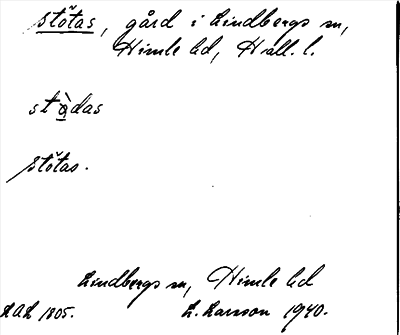 Stötas, gård i Lindbergs sn,
Himle hd, Hall. l.
stàdas
Stötas.
Lindbergs sn, Himle hd
LAL 1805. L. Larsson 1940.